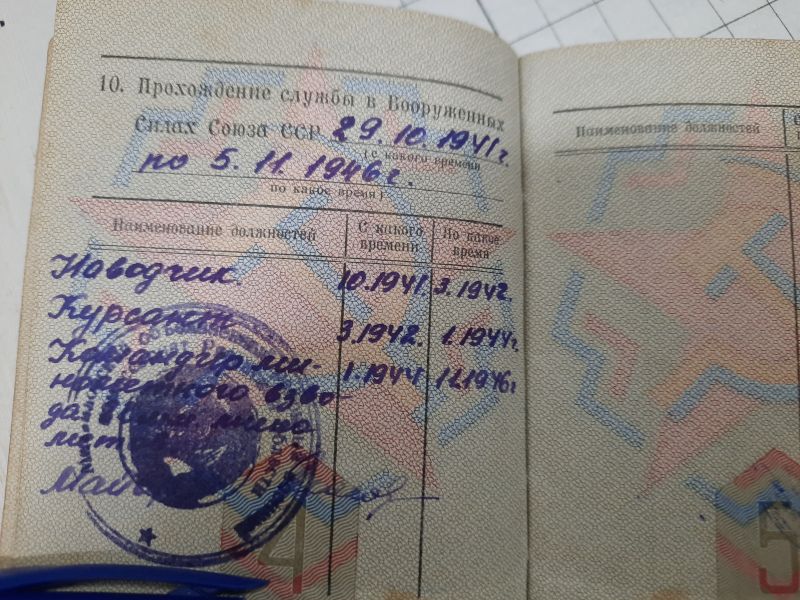 10. Прохождение службы в Вооруженных
Силах Союза ССР 29.10.1941г.
(с какого времени
по 5.11.1946г.
по какое время)
Наименование должностей
С какого времени
По какое время
Наводчик. 10.1941. 3.1942.
Курсант 3.1942. 1.1944г.
Командир ми-
нометного взво- 1.1944 11.1946г
да
мет
Майор
4
Наименование должностей
С
5